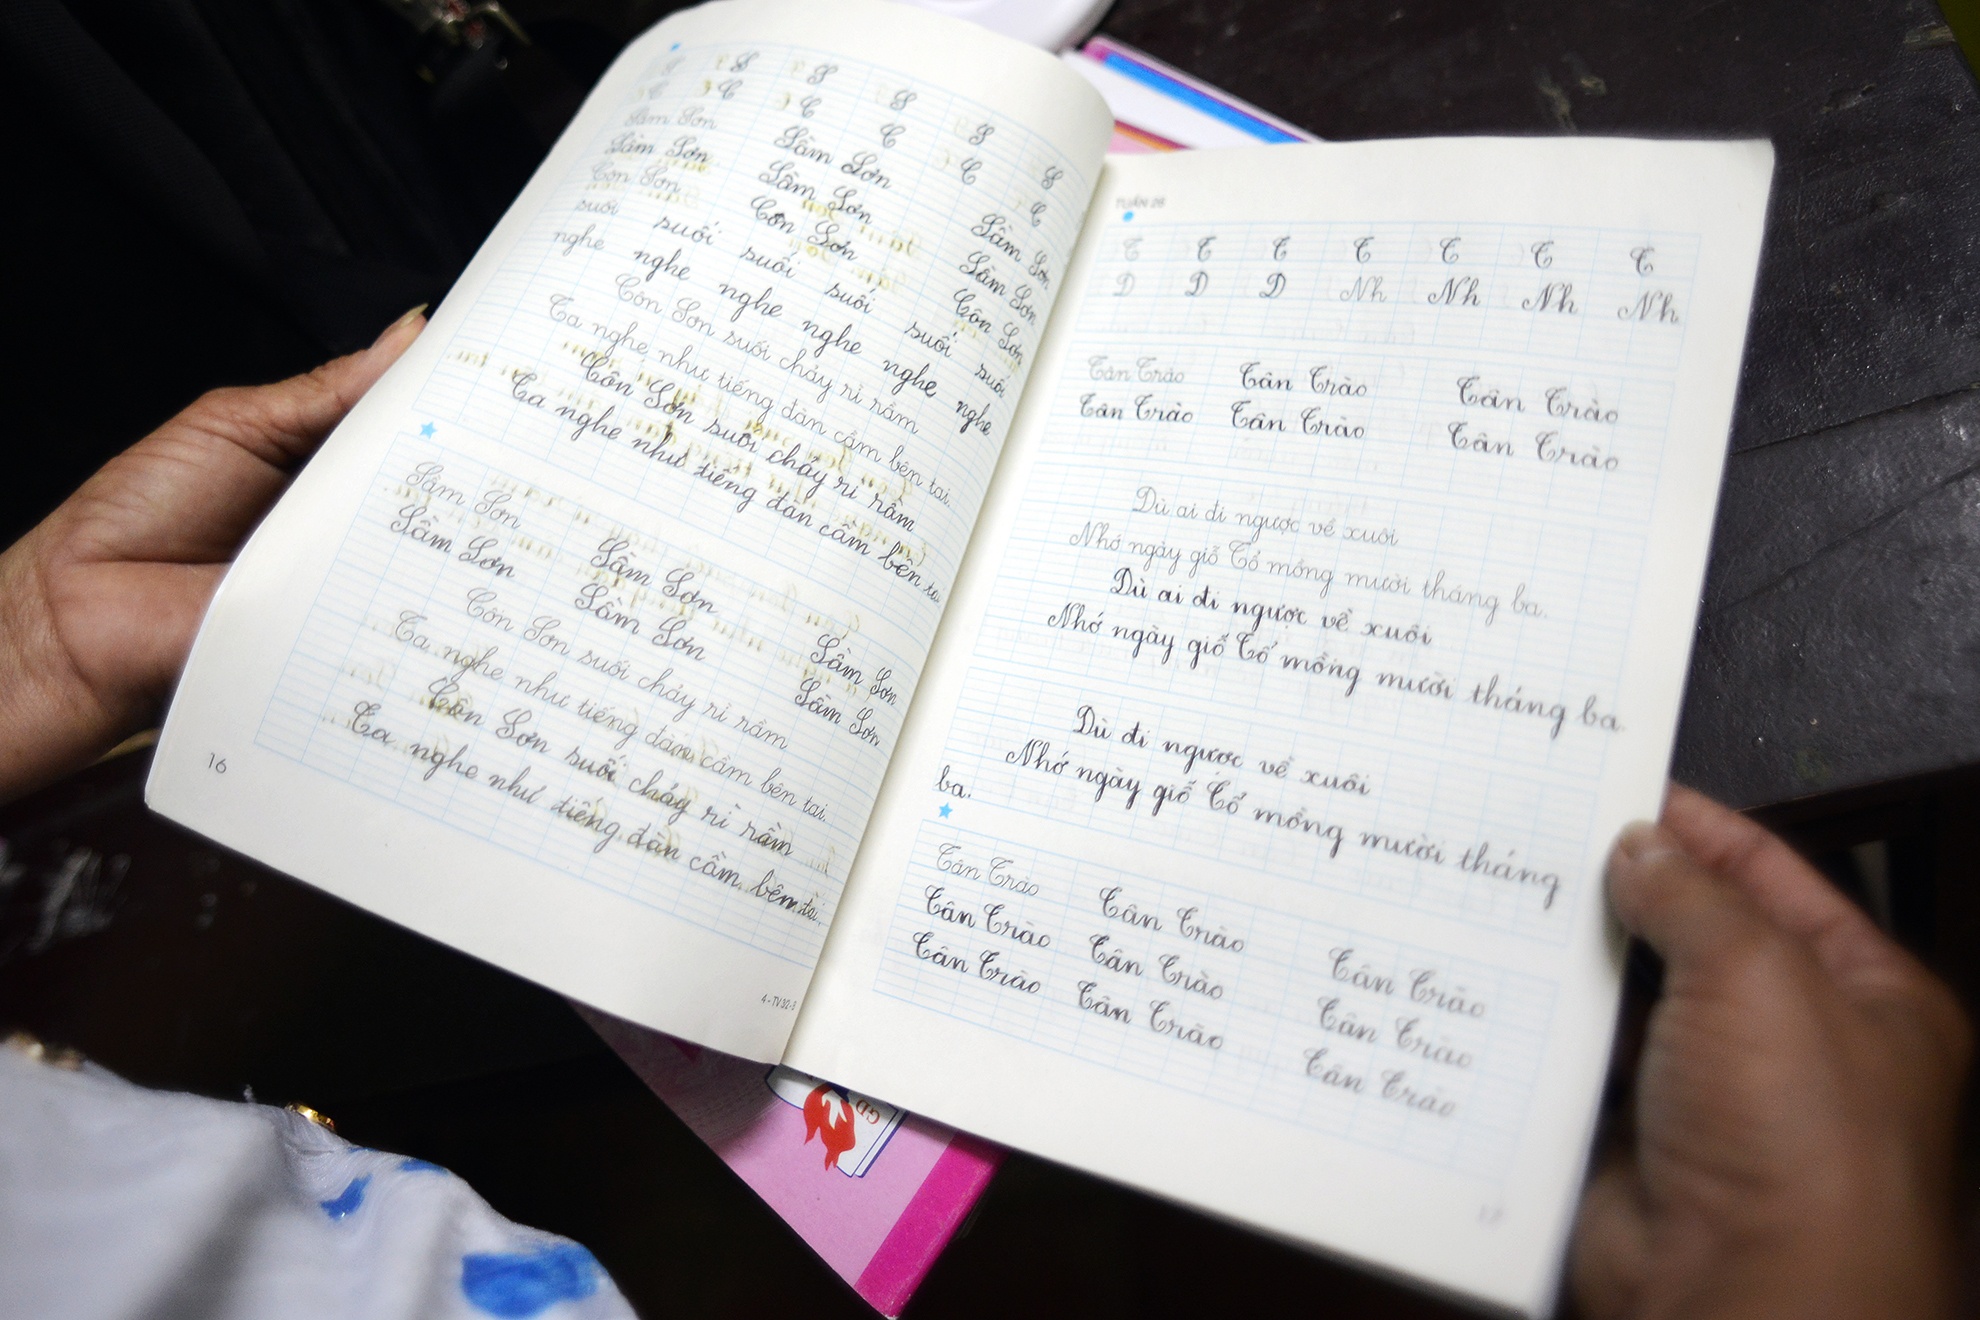 S S S S S S
C C C C C C
Sầm Sơn Sầm Sơn Sầm Sơn
Sầm Sơn Sầm Sơn Sầm Sơn
Côn Sơn Côn Sơn Côn Sơn
suối suối suối suối suối suối
nghe nghe nghe nghe nghe nghe
Côn Sơn suối chảy rì rầm
Ta nghe như tiếng đàn cầm bên tai.
Côn Sơn suối chảy rì rầm
Ta nghe như tiếng đàn cầm bên tai.
Sầm Sơn Sầm Sơn Sầm Sơn
Sầm Sơn Sầm Sơn Sầm Sơn
Côn Sơn suối chảy rì rầm
Ta nghe như tiếng đàn cầm bên tai.
Côn Sơn suối chảy rì rầm
Ta nghe như tiếng đàn cầm bên tai.
16
TUẦN 26
T T T T T T T
D D D Nh Nh Nh Nh
Tân Trào Tân Trào Tân Trào
Tân Trào Tân Trào Tân Trào
Dù ai đi ngược về xuôi
Nhớ ngày giỗ Tổ mồng mười tháng ba.
Dù ai đi ngược về xuôi
Nhớ ngày giỗ Tổ mồng mười tháng ba.
Dù đi ngược về xuôi
Nhớ ngày giỗ Tổ mồng mười tháng
ba.
Tân Trào Tân Trào Tân Trào
Tân Trào Tân Trào Tân Trào
Tân Trào Tân Trào Tân Trào
17
GD